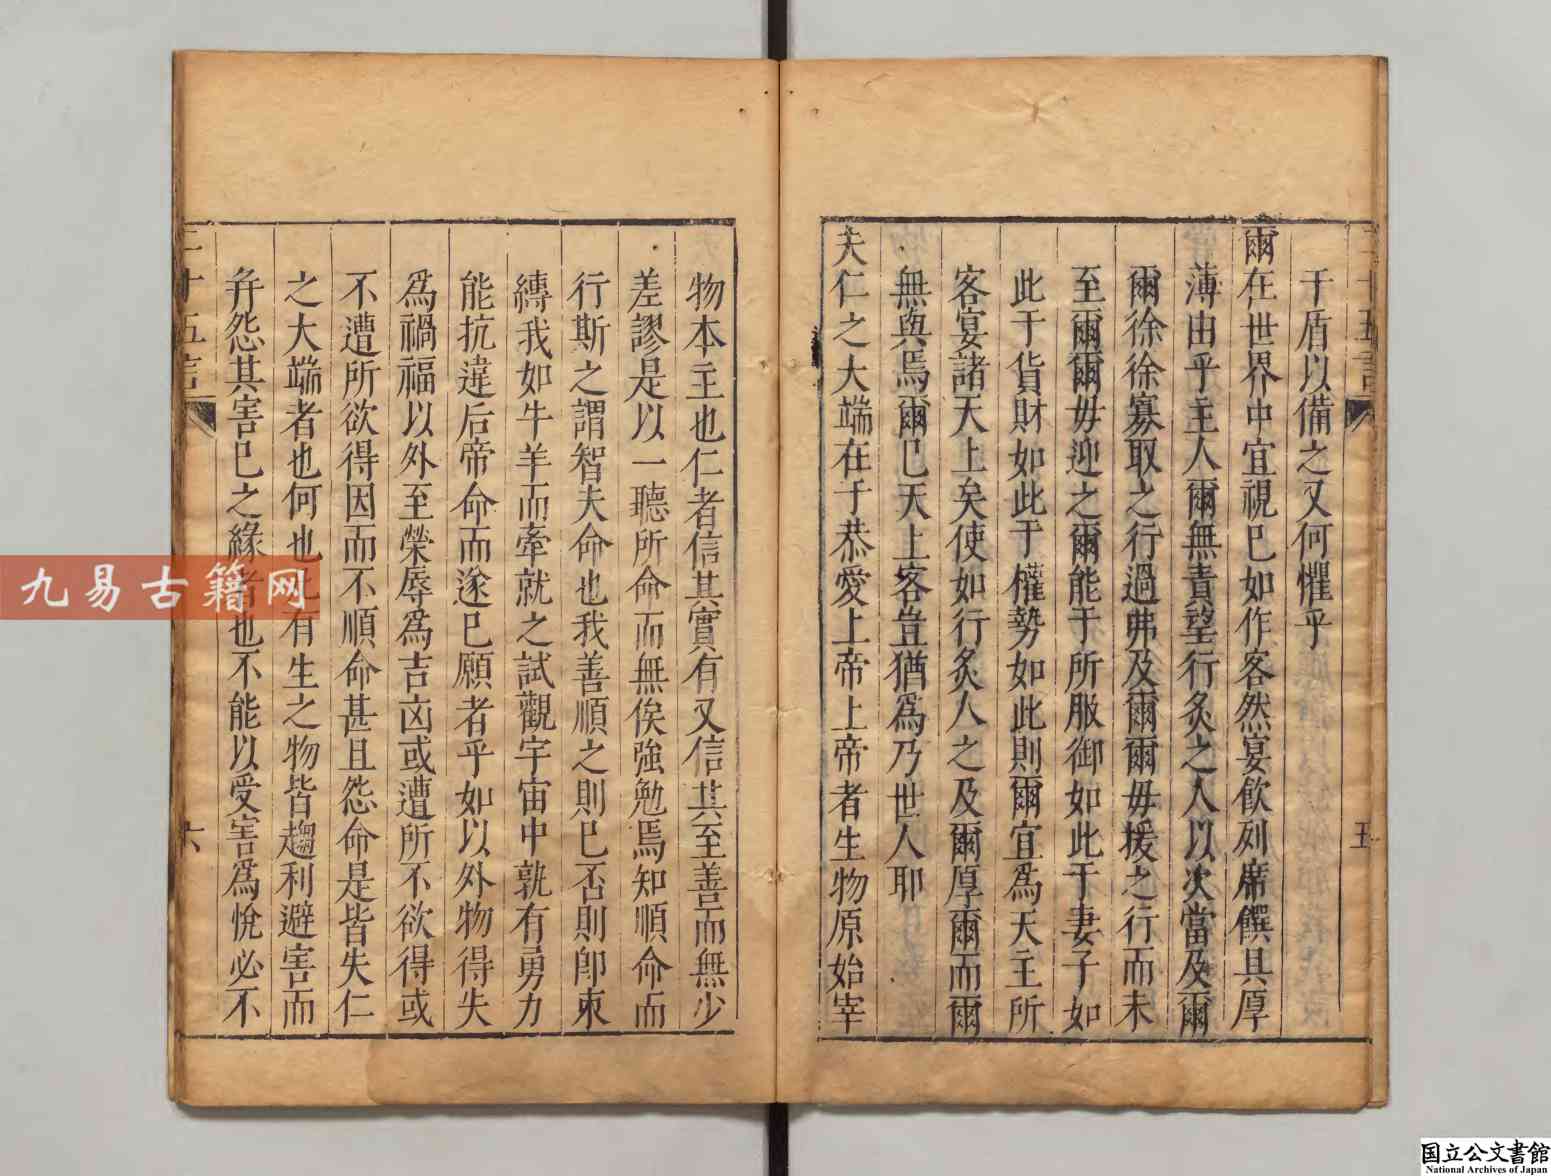 二十五言
五
干盾以備之又何懼乎
爾在世界中宜視已如作客然宴飲列席饌具厚
薄由乎主人爾無責望行炙之人以次當及爾
爾徐徐寡取之行過弗及爾爾毋援之行而未
至爾爾毋迎之爾能于所服御如此于妻子如
此于貨財如此于權勢如此則爾宜為天主所
客宴諸天上矣使如行炙人之及爾厚爾而爾
無與焉爾已天上客豈猶為乃世人耶
夫仁之大端在于恭愛上帝上帝者生物原始宰
物本主也仁者信其實有又信其至善而無少
差謬是以一聽所命而無俟強勉焉知順命而
行斯之謂智夫命也我善順之則已否則即束
縛我如牛羊而牽就之試觀宇宙中孰有勇力
能抗違后帝命而遂已願者乎如以外物得失
為禍福以外至榮辱為吉凶或遭所不欲得或
不遭所欲得因而不順命甚且怨命是皆失仁
之大端者也何也有生之物皆趨利避害而
并怨其害已之緣者也不能以受害為悅必不
二十五言
六
九易古籍网
国立公文書館
National Archives of Japan